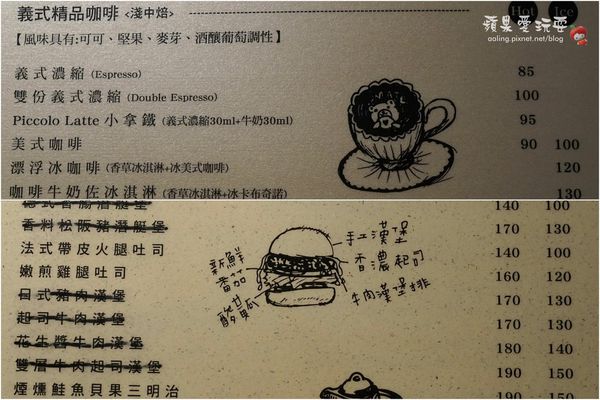 義式精品咖啡 <淺中焙> Hot Ice
【風味具有:可可、堅果、麥芽、酒釀葡萄調性】
義式濃縮 (Espresso) 85
雙份義式濃縮 (Double Espresso) 100
Piccolo Latte 小拿鐵 (義式濃縮30ml+牛奶30ml) 95
美式咖啡 90 100
漂浮冰咖啡 (香草冰淇淋+冰美式咖啡) 120
咖啡牛奶佐冰淇淋 (香草冰淇淋+冰卡布奇諾) 130
蘋果愛玩耍
aaling.pixnet.net/blog
德式香腸潛艇堡 140 100
香料松阪豬潛艇堡 170 130
法式帶皮火腿吐司 140 100
嫩煎雞腿吐司 160 120
日式豬肉漢堡 170 130
起司牛肉漢堡 170 130
花生醬牛肉漢堡 180 140
雙層牛肉起司漢堡 190 150
煙燻鮭魚貝果三明治 190 150
新鮮番茄
酸黃瓜
手工漢堡
香濃起司
牛肉漢堡排